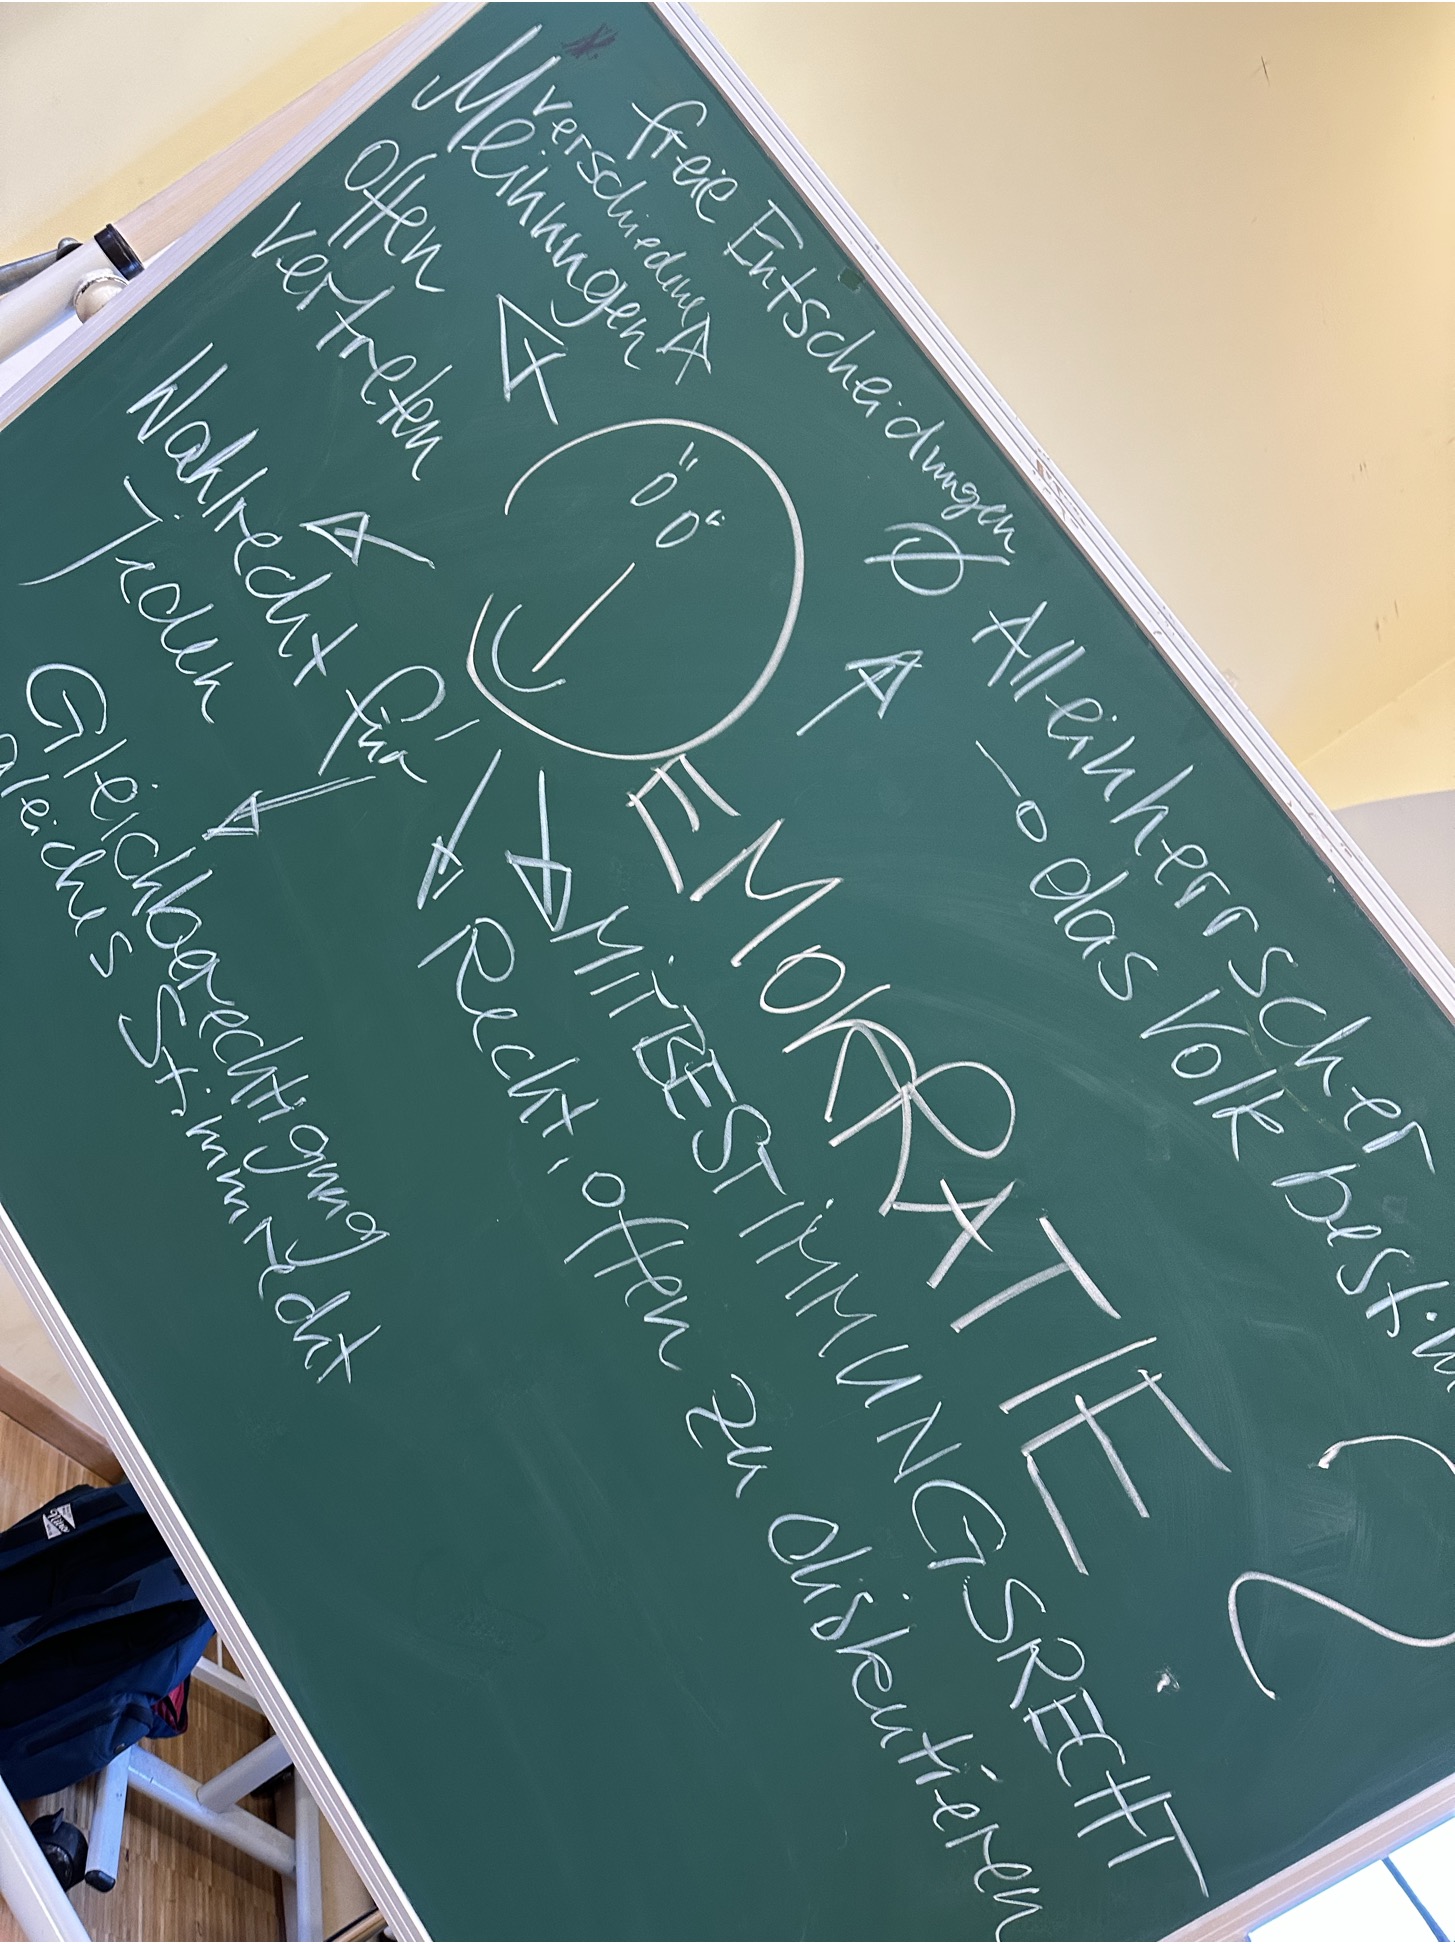 freie Entscheidungen
verschiedene
Meinungen
offen
vertreten
Ø Alleinherrscher
→ das Volk bestim
DEMOKRATIE ?
MITBESTIMMUNGSRECHT
Recht, offen zu diskutieren
Wahlrecht für
Jeden
Gleichberechtigung
gleiches Stimmrecht